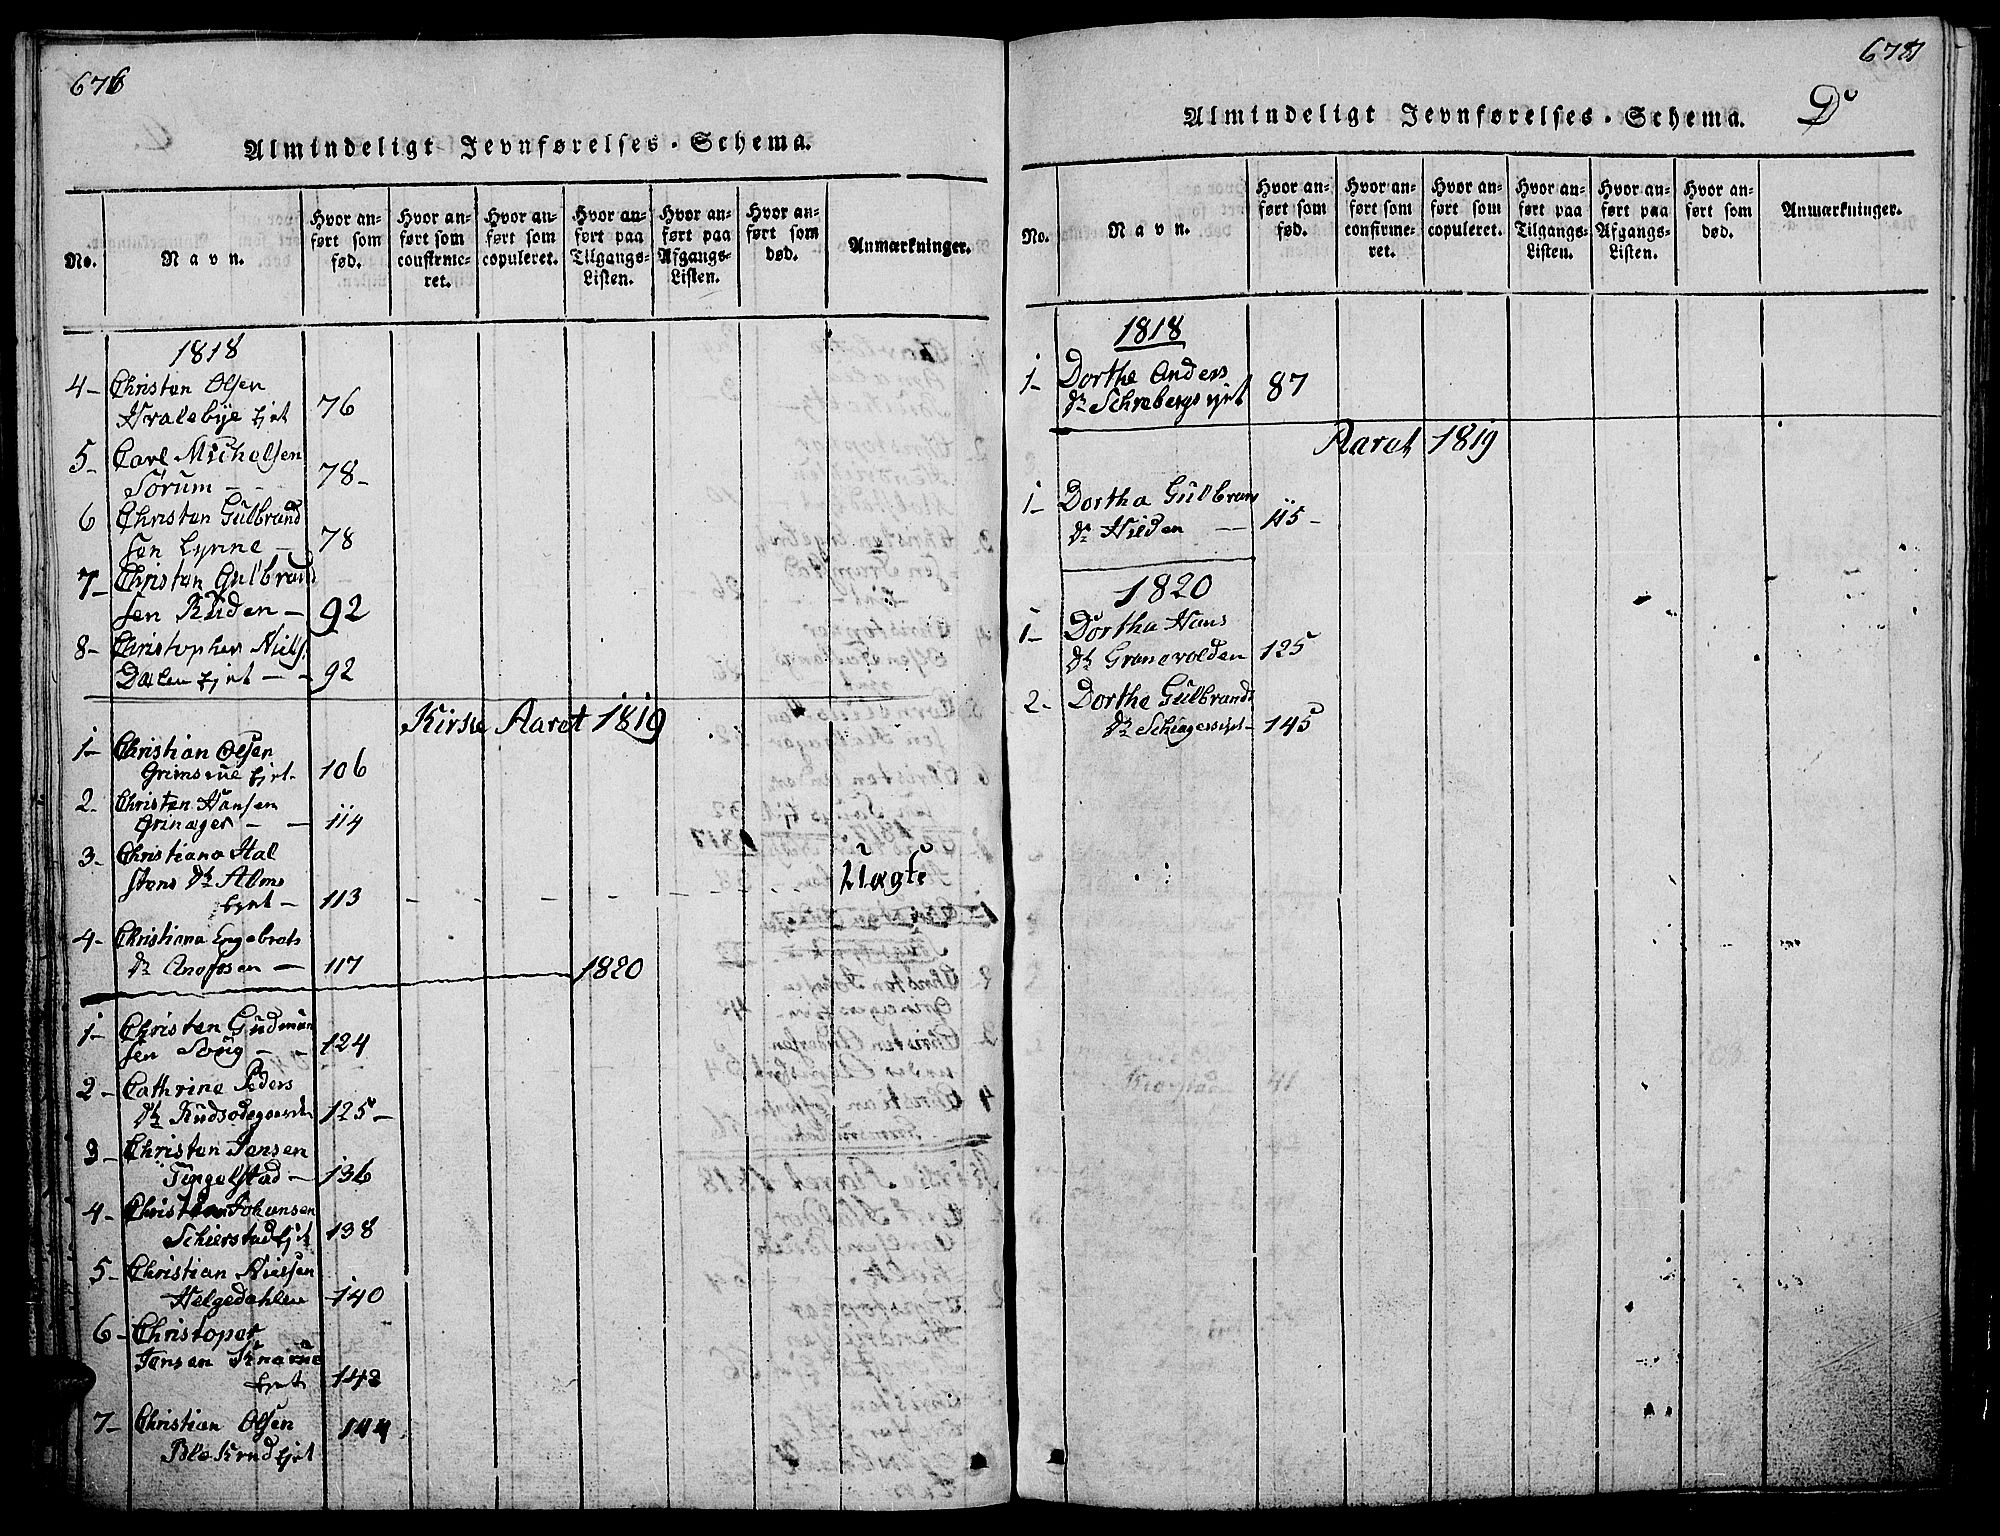 676
Almindeligt Jevnførelses-Schema.
No.
Navn.
Hvor anført som fød.
Hvor anført som confirmeret.
Hvor anført som copuleret.
Hvor anført paa Tilgangs-Listen.
Hvor anført paa Afgangs-Listen.
Hvor anført som død.
Anmærkninger.
1818
4- Christen Olsen
Hvalebye Ejet 76
5- Carl Michelsen
Sørum - 78-
6 Christen Gulbrand
sen Lynne - 78
7- Christen Gulbrand
sen Ruden - 92
8- Christopher Niels.
Dælen Ejet - - 92
Kirke Aaret 1819
1- Christian Olsen
Grimsrue Ejet. 106
2- Christen Hansen
Grinager - - 114
3- Christiana Hal
stens Dr Alms
Ejet - 113 Uægte
4- Christiana Engebrets
Dr - 117
1820
1- Christen Gudmun
sen Soug - - 124
2- Cathrine Peders
Dr 125-
3- Christen Jensen
Tingelstad - 136
4- Christian Johansen
Schierstad Ejet 138
5- Christian Nielsen
Helgedahlen 140
6- Christoper
Jensen
Ejet 143
7- Christian Olsen
Ejet 144
677
Almindeligt Jevnførelses-Schema. D
No.
Navn.
Hvor anført som fød.
Hvor anført som confirmeret.
Hvor anført som copuleret.
Hvor anført paa Tilgangs-Listen.
Hvor anført paa Afgangs-Listen.
Hvor anført som død.
Anmærkninger.
1818
1- Dorthe Anders
Dr Schrebergs Ejet 87
Aaret 1819
1- Dortha Gulbrans
Dr Hilden - 115-
1820
1- Dortha Hans
Dr Granevolden 125
2- Dorthe Gulbrands
Dr 145